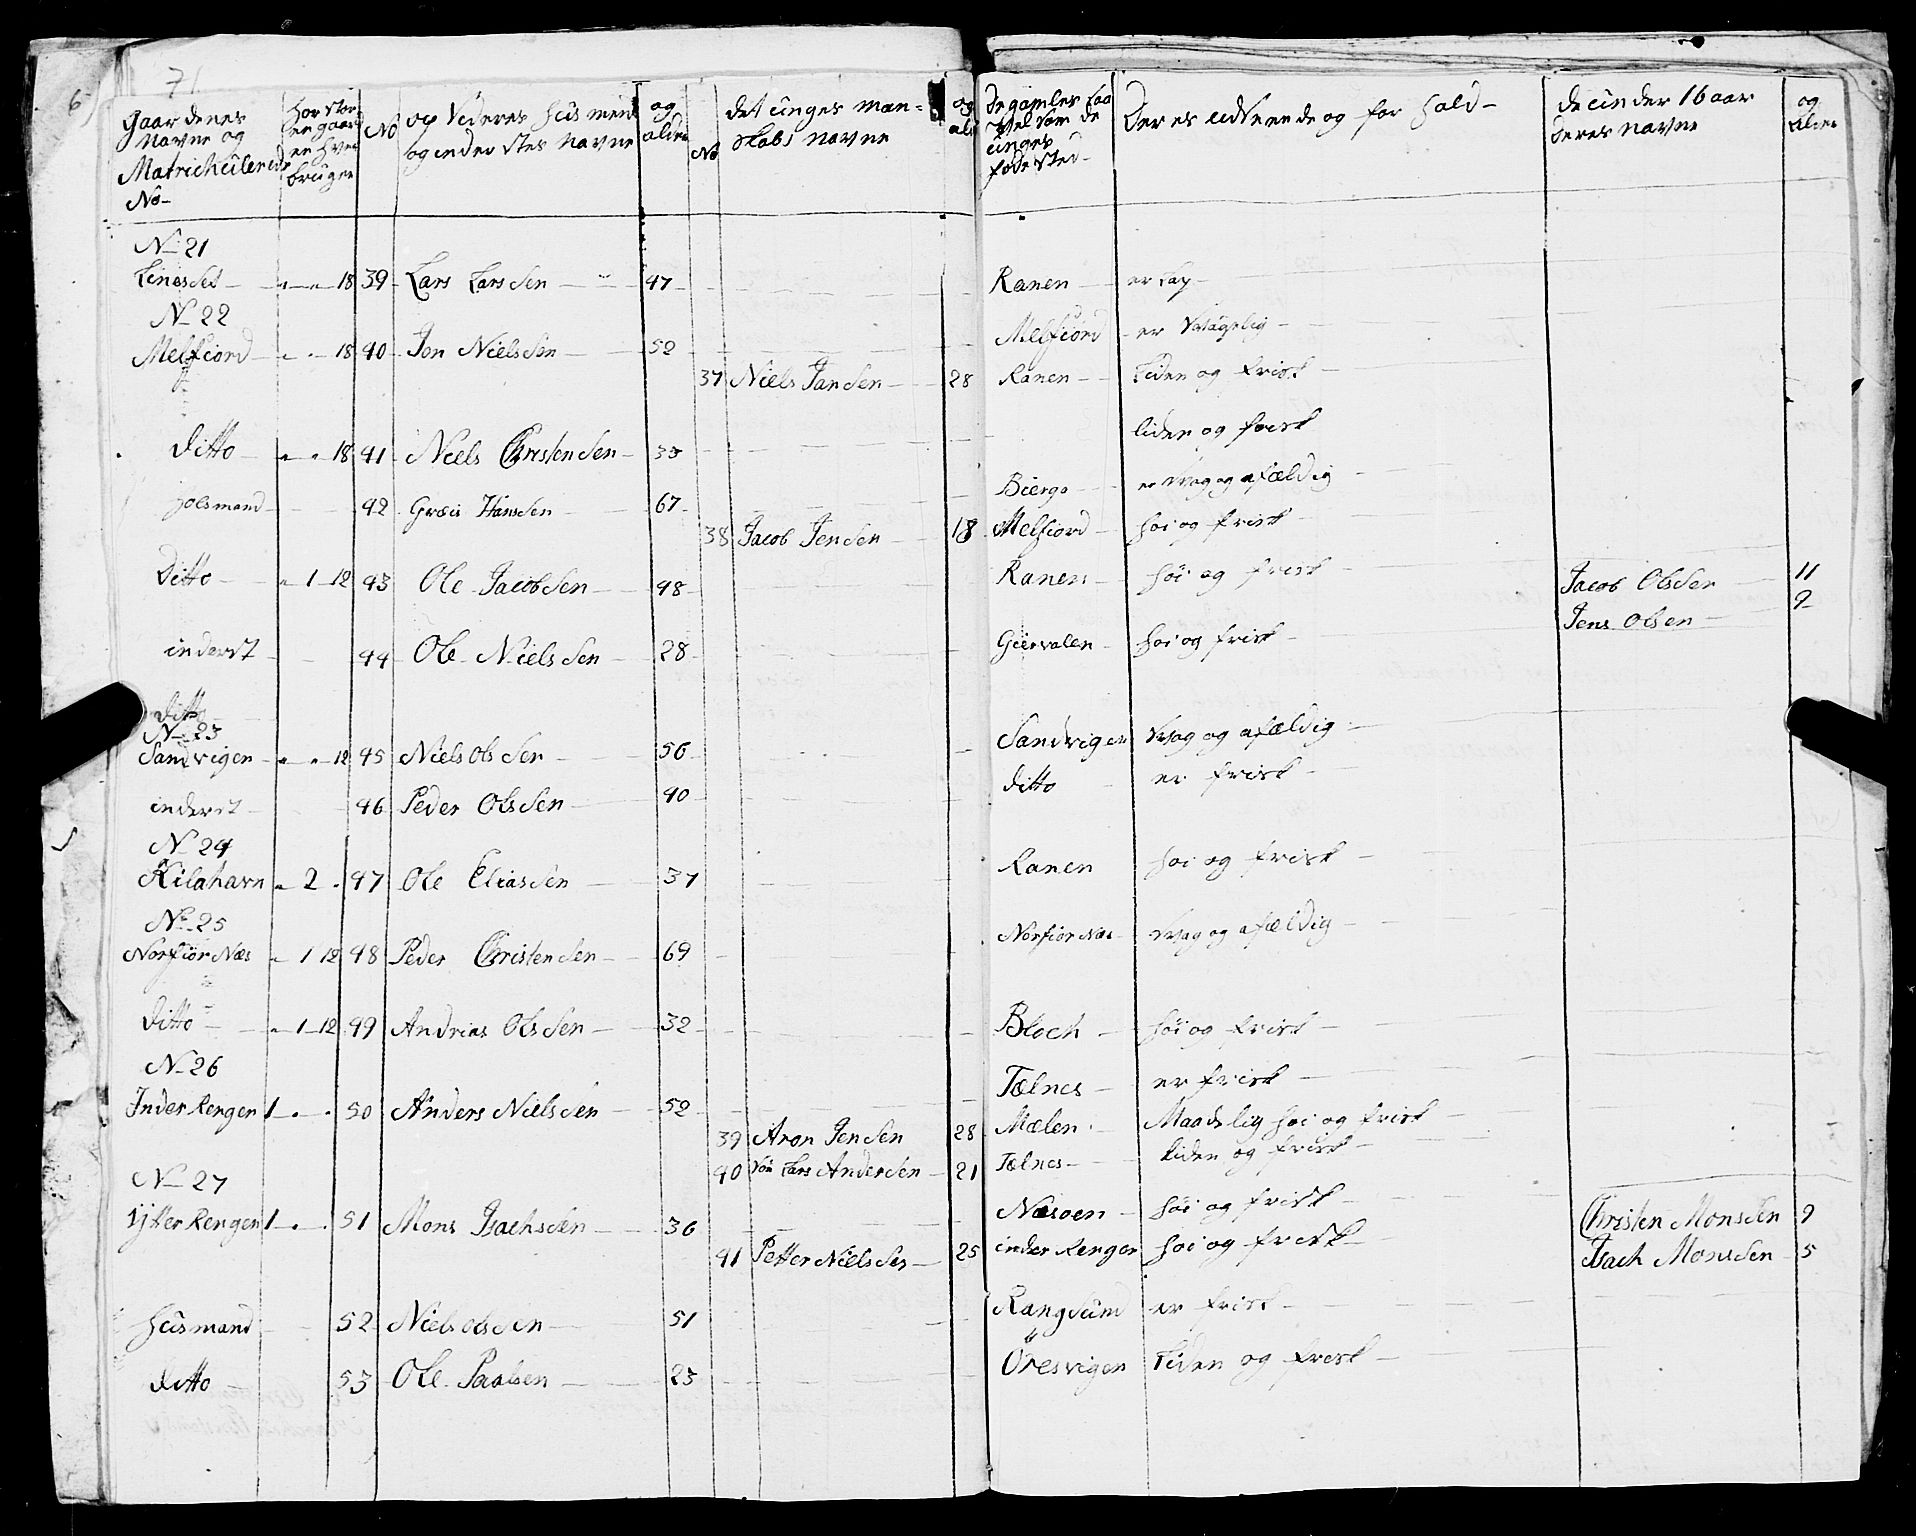 71
6
Gaardenes Navne og Matrichulerede No
hor stor en gaard en hver bruger
No
og Videres Husmend og inderstes Navne
og alder
No
det unges Man= skabs Navne
De gamles saa vel som de unges føde sted
Deres udseende og for hold
de under 16 aar deres Navne
og alder
No 21
18 39 Lars Larssen 47 Ranen er
No 22
Melfiord 18 40 Jon Nielssen 52 Melfiord er
37 Niels Jansen 28 Ranen Liden og frisk
Ditto 18 41 Niels Christensen 33 liden og frisk
42 Hanssen 67 er Svag og afældig
38 Jacob Jensen 18 Melfiord høi og frisk
Ditto 1 12 43 Ole Jacobsen 48 Ranen høi og frisk Jacob Olssen 11
Jens Olsen 9
inderst 44 Ole Nielssen 28 Giervalen høi og frisk
Ditto
No 23
Sandvigen 12 45 Niels Olssen 56 Sandvigen Svag og afældig
inderst 46 Peder Olssen 40 Ditto er frisk
No 24
Kilahavn 2 47 Ole Eliassen 37 Ranen høi og frisk
No 25
Norfiør Næs 1 12 48 Peder Christensen 69 Norfiør Næs Svag og afældig
Ditto 1 12 49 Andrias Olssen 32 Bloch høi og frisk
No 26
Inder Rengen 1 50 Anders Nielssen 52 Tælnes er frisk
39 Aron Jensen 28 Mælen Maadelig høi og frisk
40 Søn Lars Andersen 21 Tælnes Liden og frisk
No 27
Ytter Rengen 1 51 Mons Isachsen 36 Næsøen høi og frisk Christen Monssen 9
41 Petter Nielssen 25 inder Rengen høi og frisk Isach Monssen 5
Husmand 52 Niels Olssen 51 Rangsund er frisk
Ditto 53 Ole Paalsen 23 Øresvigen Liden og frisk